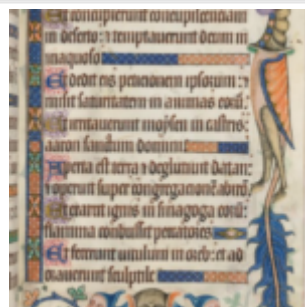 Et concupierunt concupiscentiam
in deserto: ⁊ temptauerunt deum in
inaquoso
Et dedit eis peticionem ipsorum: ⁊
misit saturitatem in animas eorū.
Et irritauerunt moysen in castris:
aaron sanctum domini:
Aperta est terra ⁊ deglutiuit datan:
⁊ operuit super congregationē abirō.
Et exarsit ignis in sinagoga eorū:
flamma combussit peccatores
Et fecerunt uitulum in oreb: et ad
orauerunt sculptile